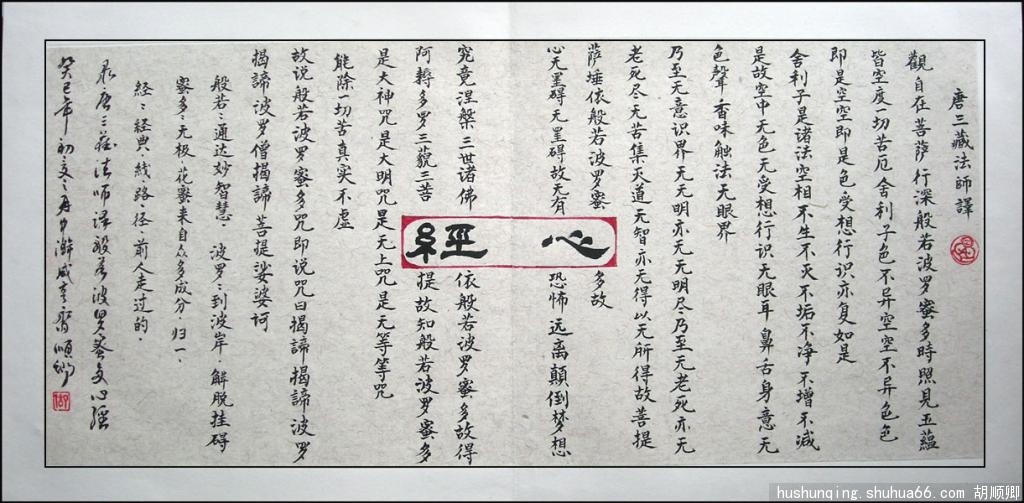 唐三藏法師譯
觀自在菩萨行深般若波罗蜜多時照見五蘊
皆空度一切苦厄舍利子色不异空空不异色色
即是空空即是色受想行识亦复如是
舍利子是诸法空相不生不灭不垢不净不增不减
是故空中无色无受想行识无眼耳鼻舌身意无
色聲香味触法无眼界
乃至无意识界无无明亦无无明尽乃至无老死亦无
老死尽无苦集灭道无智亦无得以无所得故菩提
萨埵依般若波罗蜜多故
心无罣碍无罣碍故无有恐怖远离颠倒梦想
心經
究竟涅槃三世诸佛依般若波罗蜜多故得
阿耨多罗三藐三菩提故知般若波罗蜜多
是大神咒是大明咒是无上咒是无等等咒
能除一切苦真实不虚
故说般若波罗蜜多咒即说咒曰揭諦揭諦波罗
揭諦波罗僧揭諦菩提娑婆诃
般若:通达妙智慧.波罗:到波岸.解脱挂碍
蜜多:无极.花蜜来自众多成分.归一.
经:经典.线.路.径.前人走过的.
录唐三藏法师译般若波罗蜜多心經
癸巳年初夏順卿
hushunqing.shuhua66.com 胡顺卿